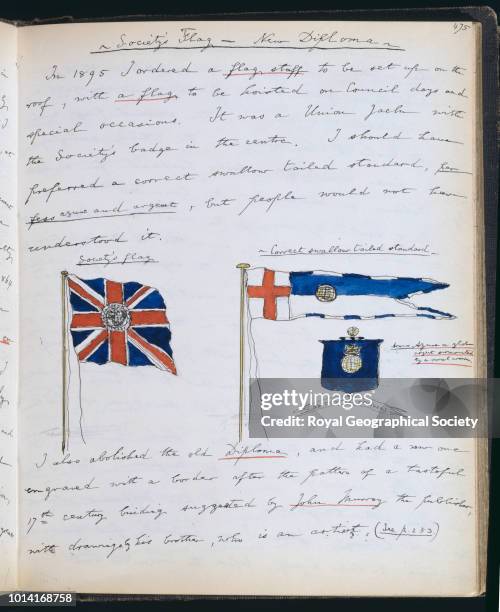 475
~ Society's Flag — New Diploma ~
In 1895 I ordered a flag staff to be set up on the
roof, with a flag to be hoisted on Council days and
special occasions. It was a Union Jack with
the Society's badge in the centre. I should have
preferred a correct swallow tailed standard, per
fess azure and argent, but people would not have
understood it.
Society's flag
~ Correct swallow tailed standard ~
Arms Azure a globe
by a royal crown
gettyimages
Royal Geographical Society
I also abolished the old Diploma, and had a new one
engraved with a border after the pattern of a tasteful
17th century binding suggested by John Murray the publisher,
with drawings by his brother, who is an artist. (See p. 283)
1014168758